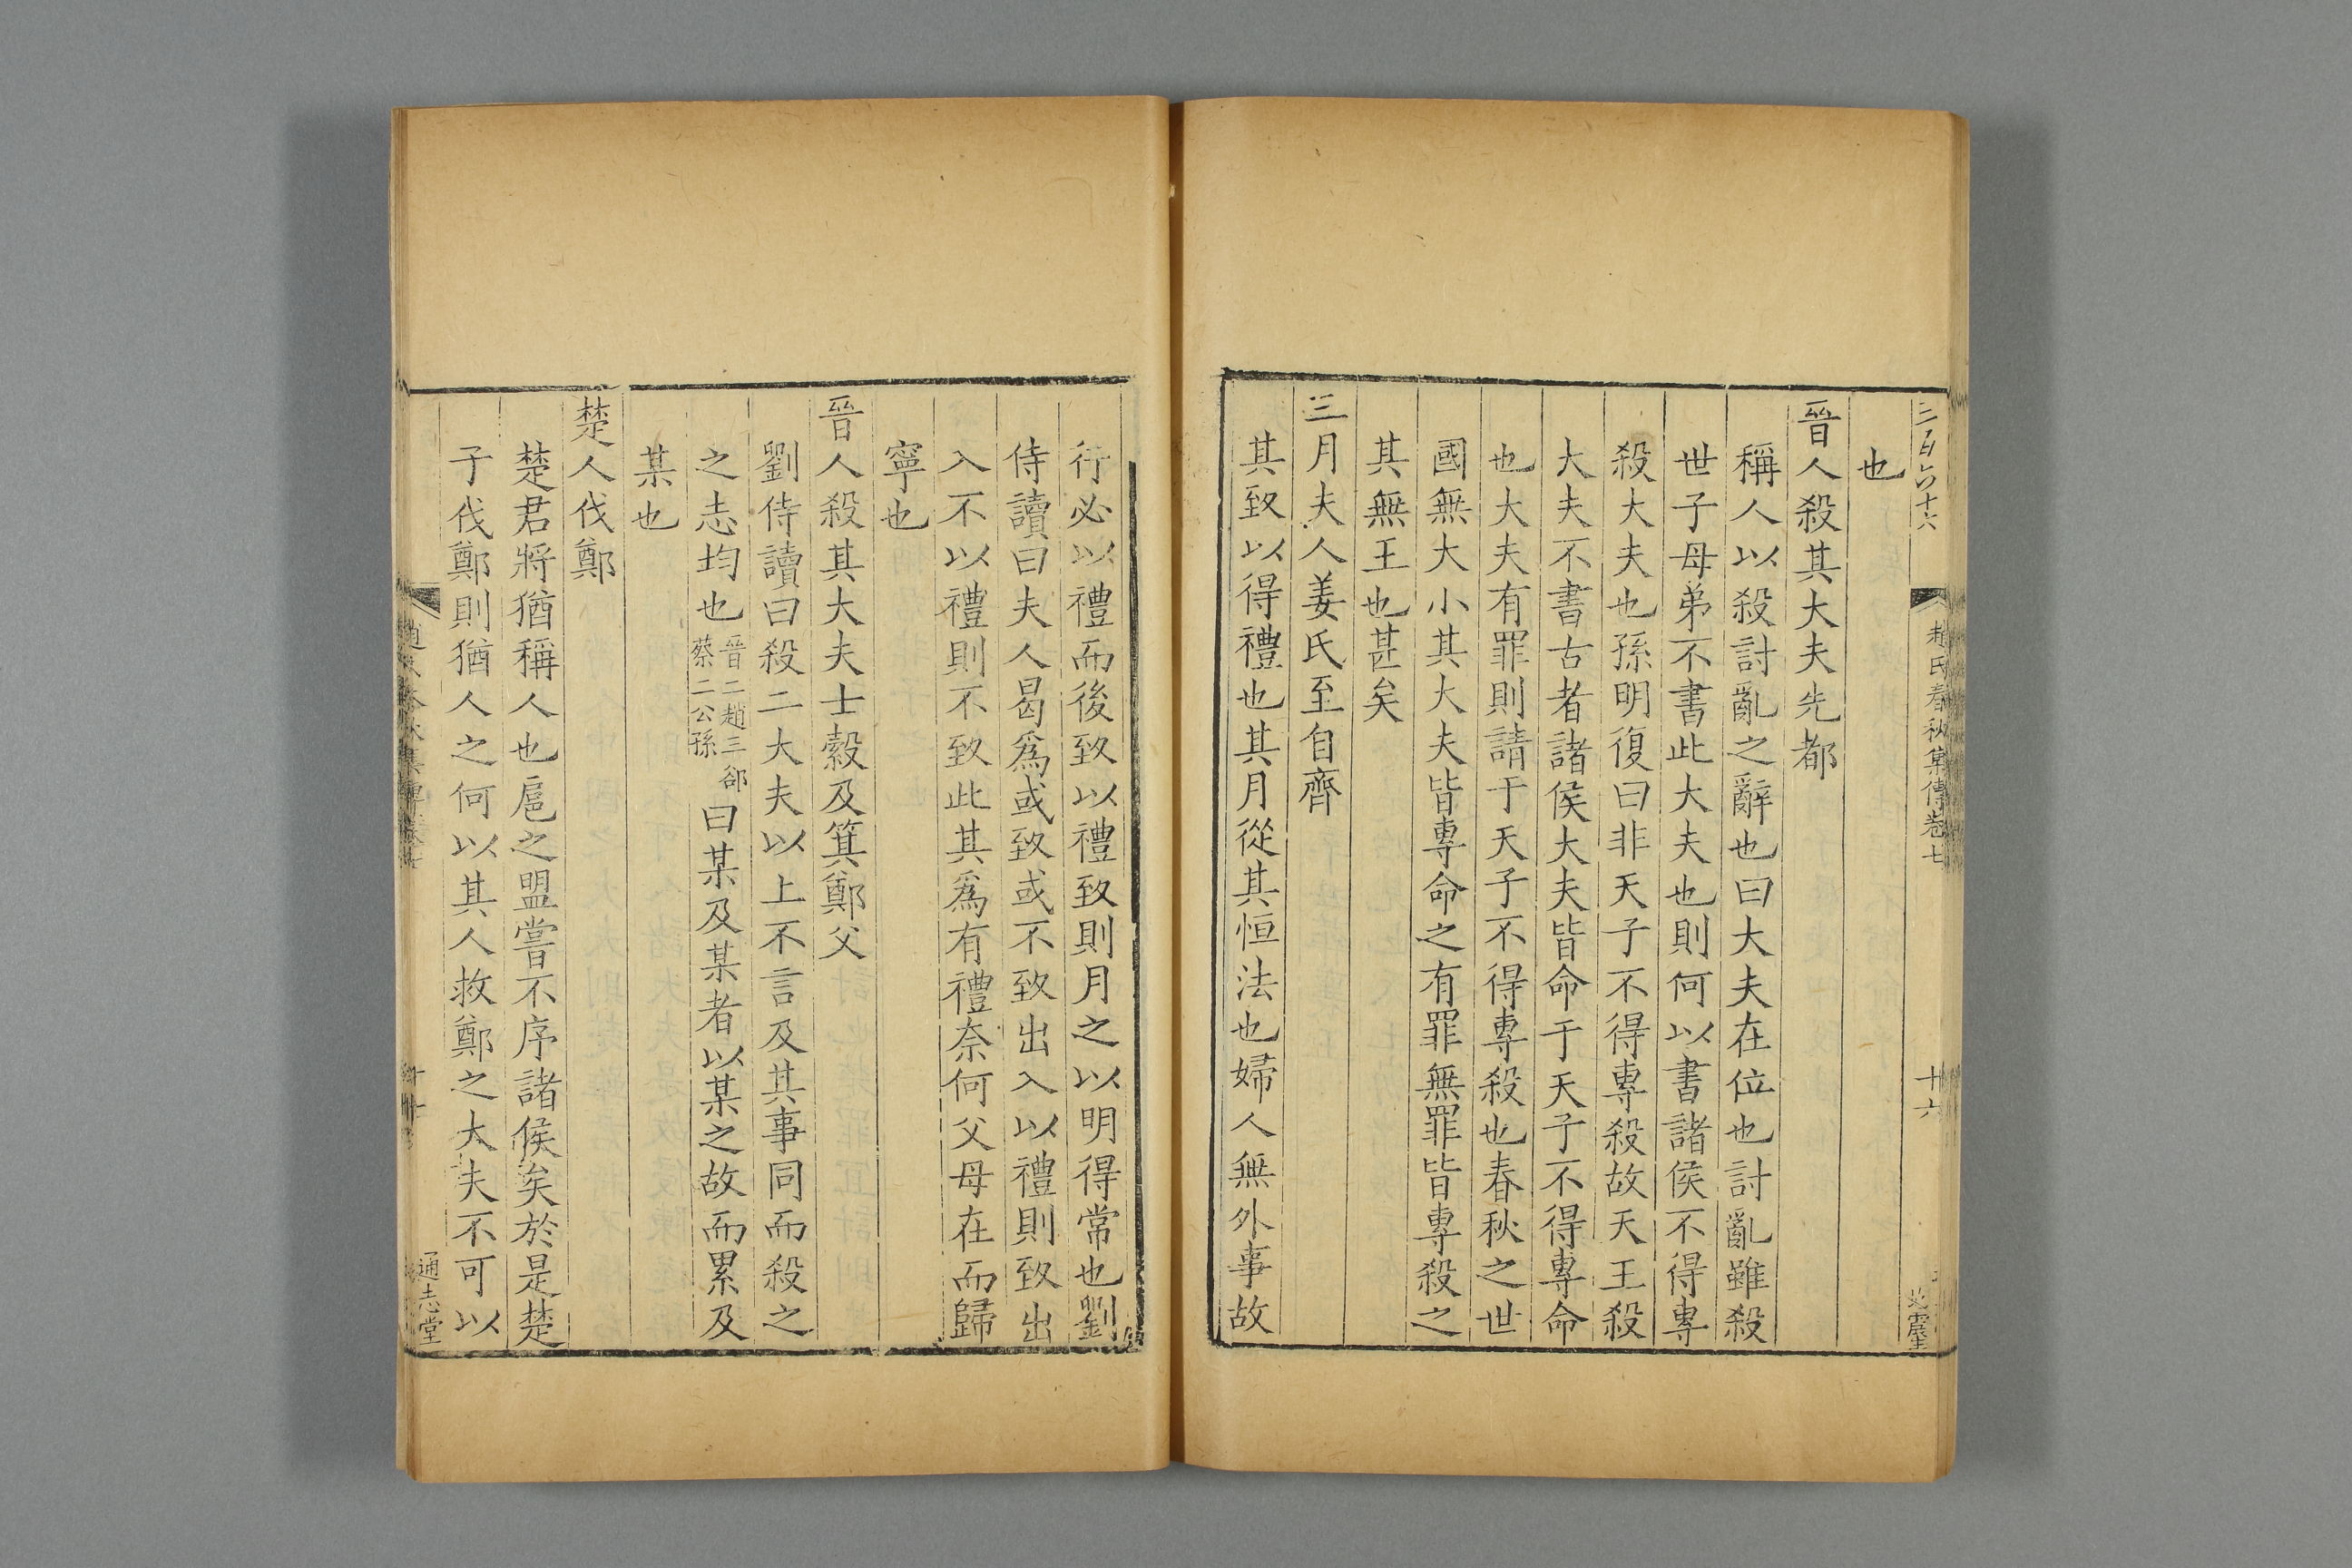 三百六十六 趙氏春秋集傳卷七 十六
也
晉人殺其大夫先都
稱人以殺討亂之辭也曰大夫在位也討亂雖殺
世子母弟不書此大夫也則何以書諸侯不得專
殺大夫也孫明復曰非天子不得專殺故天王殺
大夫不書古者諸侯大夫皆命于天子不得專命
也大夫有罪則請于天子不得專殺也春秋之世
國無大小其大夫皆專命之有罪無罪皆專殺之
其無王也甚矣
三月夫人姜氏至自齊
其致以得禮也其月從其恒法也婦人無外事故
行必以禮而後致以禮致則月之以明得常也劉
侍讀曰夫人曷爲或致或不致出入以禮則致出
入不以禮則不致此其爲有禮奈何父母在而歸
寧也
晉人殺其大夫士縠及箕鄭父
劉侍讀曰殺二大夫以上不言及其事同而殺之
之志均也晉二趙三郤蔡二公孫曰某及某者以某之故而累及
某也
楚人伐鄭
楚君將猶稱人也扈之盟嘗不序諸侯矣於是楚
子伐鄭則猶人之何以其人救鄭之大夫不可以
通志堂